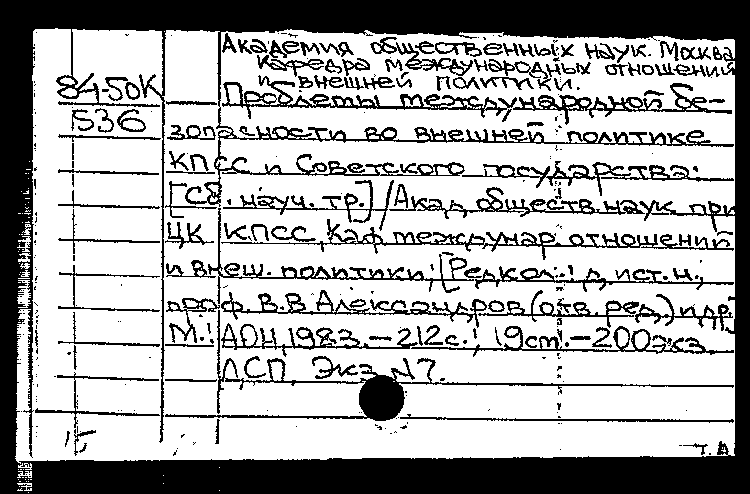 Академия общественных наук. Москва
Кафедра международных отношений
и внешней политики.
84-50К
Проблемы международной бе-
536
зопасности во внешней политике
КПСС и Советского государства:
[Сб. науч. тр.] / Акад. обществ. наук при
ЦК КПСС, Каф. междунар. отношений
и внеш. политики; [Редкол.: д. ист. н.,
проф. В.В. Александров (отв. ред.) и др.
М.: АОН, 1983. – 212 с.; 19 см. – 200 экз.
ДСП. Экз. N 7.
15